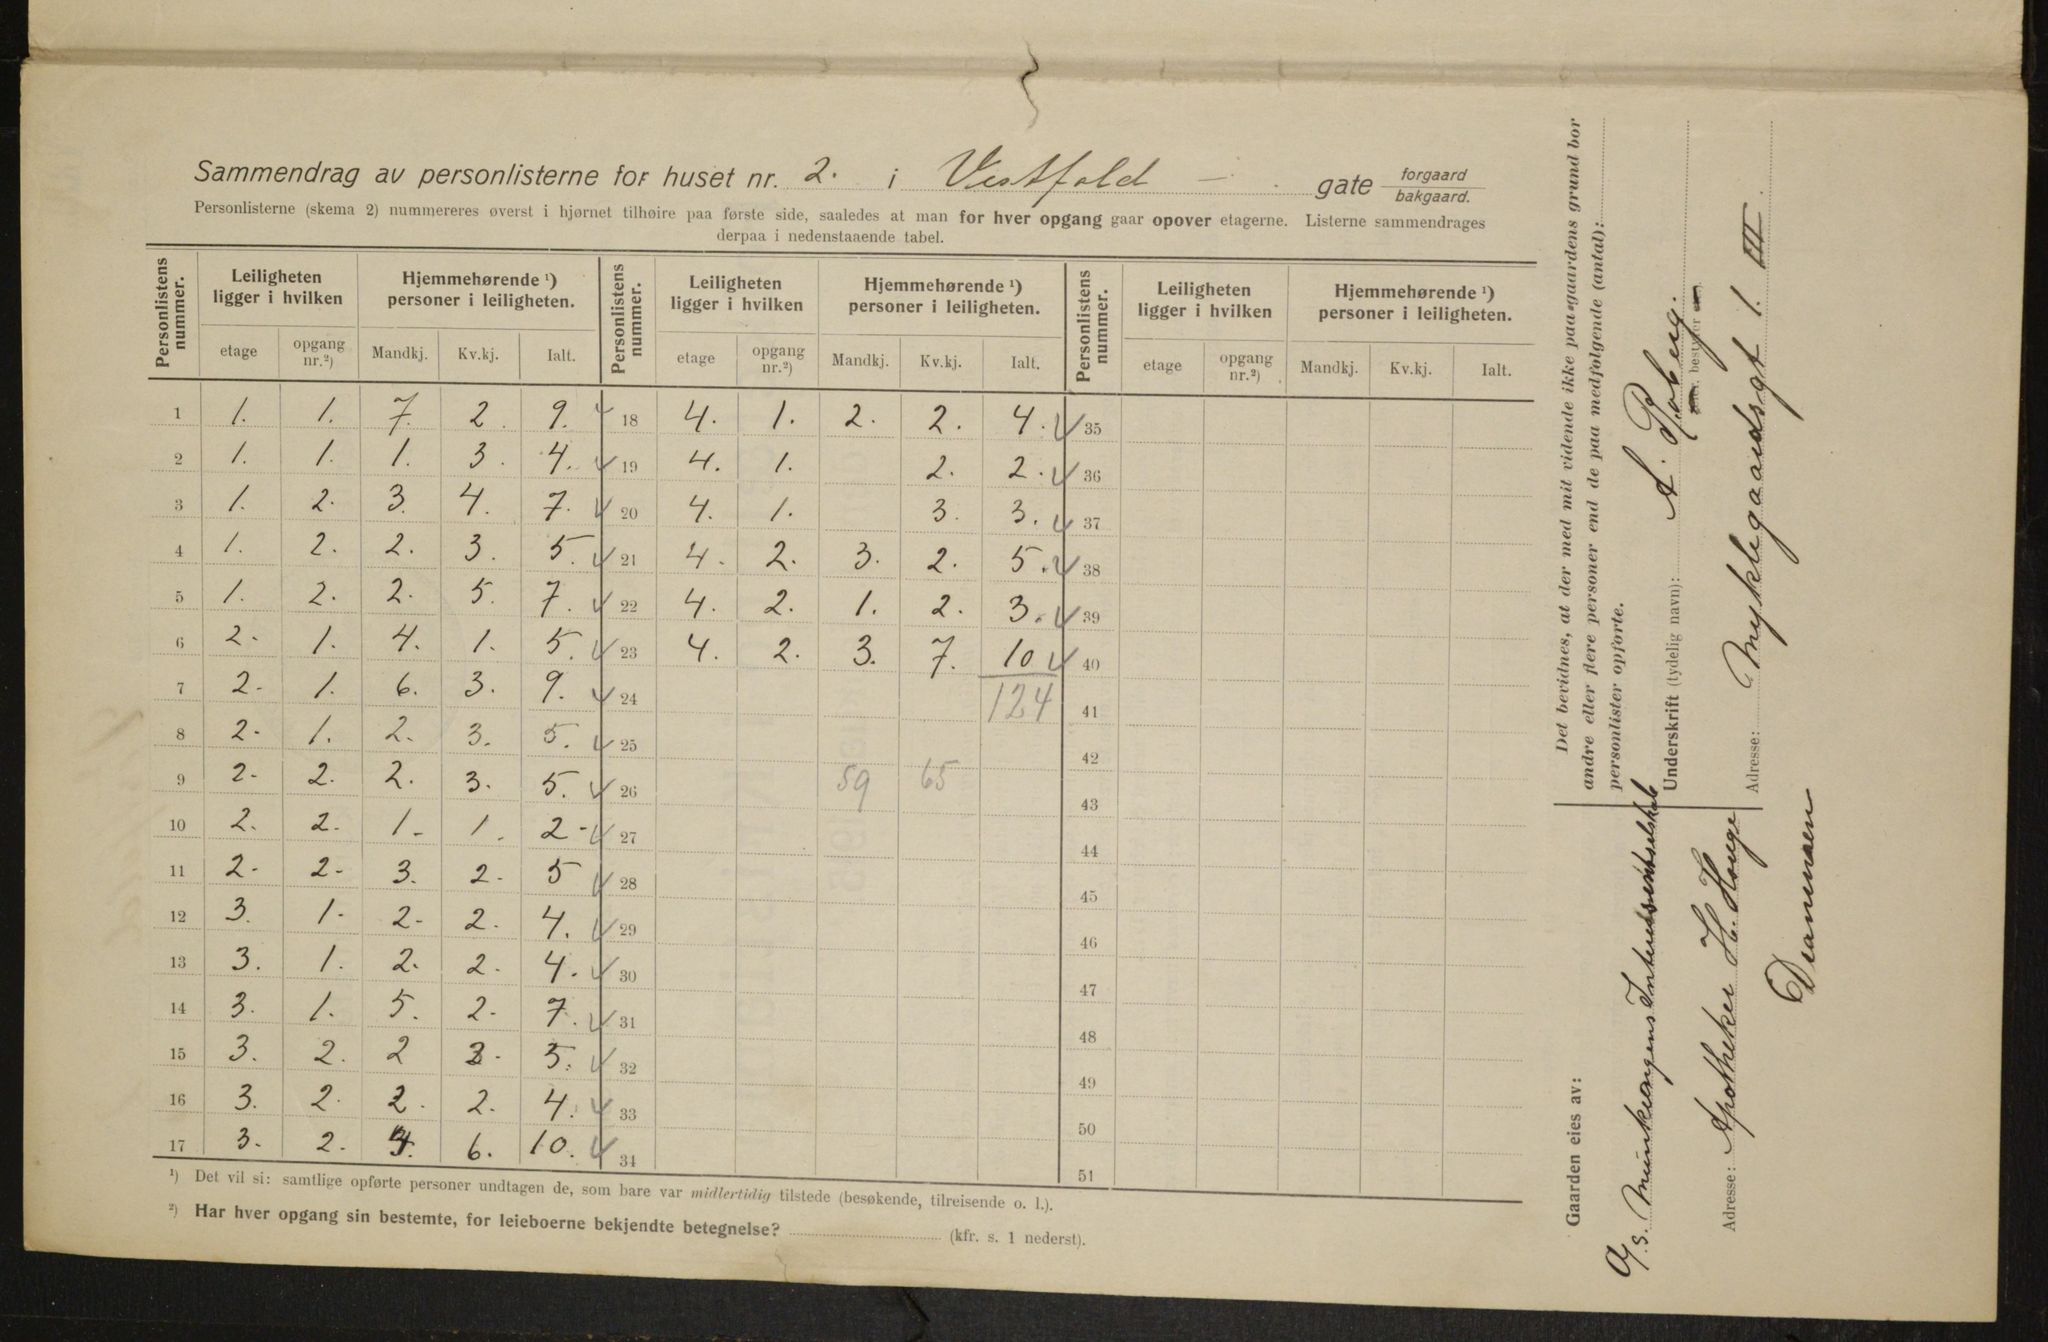 Sammendrag av personlisterne for huset nr. 2. i Vestfold - gate forgaard bakgaard.
Personlisterne (skema 2) nummereres øverst i hjørnet tilhøire paa første side, saaledes at man for hver opgang gaar opover etagerne. Listerne sammendrages
derpaa i nedenstaaende tabel.
Personlistens nummer. Leiligheten ligger i hvilken Hjemmehørende ¹) personer i leiligheten. Personlistens nummer. Leiligheten ligger i hvilken Hjemmehørende ¹) personer i leiligheten. Personlistens nummer. Leiligheten ligger i hvilken Hjemmehørende ¹) personer i leiligheten.
etage opgang nr.²) Mandkj. Kv.kj. Ialt. etage opgang nr.²) Mandkj. Kv.kj. Ialt. etage opgang nr.²) Mandkj. Kv.kj. Ialt.
1 1. 1. 7. 2. 9. 18 4. 1. 2. 2. 4. 35
2 1. 1. 1. 3. 4. 19 4. 1. 2. 2. 36
3 1. 2. 3. 4. 7. 20 4. 1. 3. 3. 37
4 1. 2. 2. 3. 5. 21 4. 2. 3. 2. 5. 38
5 1. 2. 2. 5. 7. 22 4. 2. 1. 2. 3. 39
6 2. 1. 4. 1. 5. 23 4. 2. 3. 7. 10 40
7 2. 1. 6. 3. 9. 24 124 41
8 2. 1. 2. 3. 5. 25 42
9 2. 2. 2. 3. 5. 26 59 65 43
10 2. 2. 1. 1. 2. 27 44
11 2. 2. 3. 2. 5 28 45
12 3. 1. 2. 2. 4. 29 46
13 3. 1. 2. 2. 4. 30 47
14 3. 1. 5. 2. 7. 31 48
15 3. 2. 2 3. 5. 32 49
16 3. 2. 2. 2. 4. 33 50
17 3. 2. 4. 6. 10. 34 51
¹) Det vil si: samtlige opførte personer undtagen de, som bare var midlertidig tilstede (besøkende, tilreisende o. l.).
²) Har hver opgang sin bestemte, for leieboerne bekjendte betegnelse? (kfr. s. 1 nederst).
Det bevidnes, at der med mit vidende ikke paa gaardens grund bor
andre eller flere personer end de paa medfølgende (antal):
personlister opførte.
Underskrift (tydelig navn): A.
bestyrer
Adresse: Myklegaardsgt 1. III.
Gaarden eies av:
A/s. Munkeengens Interessentselskab
Adresse: Apotheker H. Hauge
Drammen